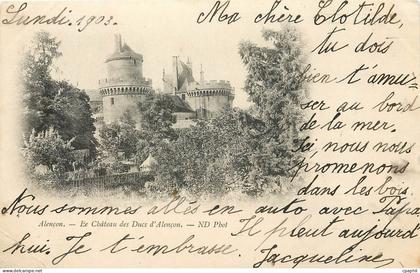 Lundi, 1903.
Ma chère Clotilde,
tu dois
bien t'amu-
ser au bord
de la mer.
Ici nous nous
promenons
dans les bois.
Nous sommes allés en auto avec Papa
Alençon. — Le Château des Ducs d'Alençon. — ND Phot
Il pleut aujourd'
hui. Je t'embrasse. Jacqueline